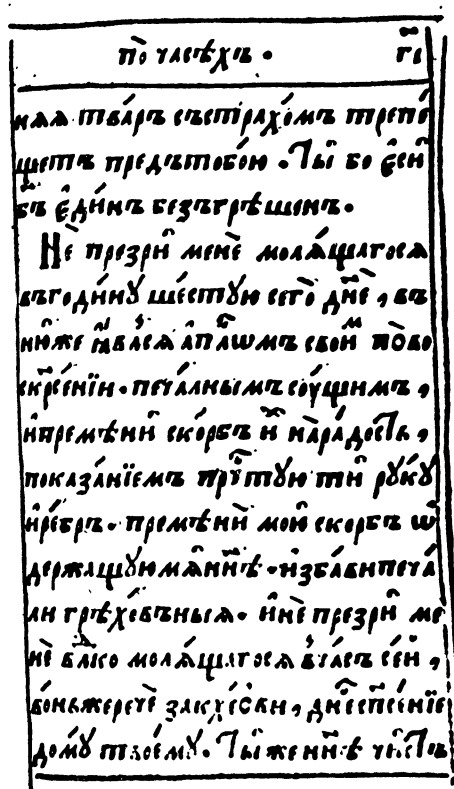 по часѣхъ · г҃і
няѧ тва́рь състра́хомъ трепе́
щетъ предътобо́ю · Ты̀ бо є҆сѝ
б҃ъ є҆ди́нъ безъгрѣшенъ ·
Нѐ презрѝ менѐ молѧ́щагосѧ
въгоди́ну ше́стую сего̀ дн҃ѐ , въ
ню́же ꙗ҆ви́сѧ а҆п҃лѡмъ свои̑мъ по̀во
скр҃се́нїи · печа́лнымъ су́щимъ ,
и҆премѣнѝ ско́рбь и҆̀хъ нара́дость ,
показа́нїемъ пречⷭ҇тую тѝ ру́ку
и҆ре́бръ · премѣнѝ мою̀ скорбь ѿ
держащую мѧ̀ нн҃ѣ · и҆зба́ви печа́
ли грѣхо́вьныѧ · и҆нѐ презрѝ ме
нѐ влⷣко молѧ́щагосѧ в̾ча́съ се́й ,
во́ньжеречѐ закхе́ови , дне́сьспⷭ҇нїе
до́му твоему̀ · Ты́же нн҃ѣ чи́сть